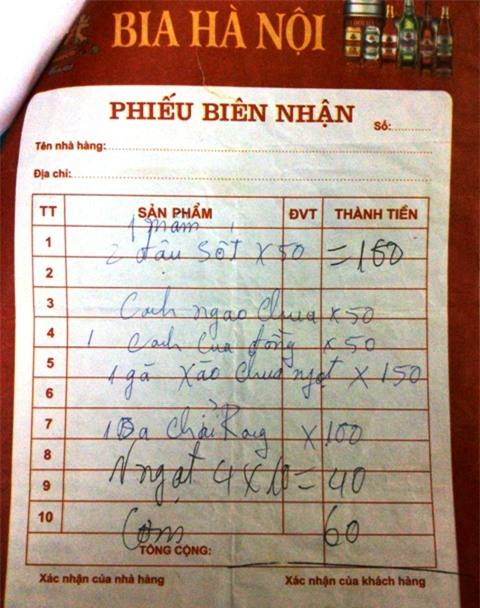 BIA HÀ NỘI
PHIẾU BIÊN NHẬN
Số:
Tên nhà hàng:
Địa chỉ:
TT SẢN PHẨM ĐVT THÀNH TIỀN
1 mắm
1
2 đậu sốt x 50 = 150
2
3
Canh ngao chua x 50
4
1 Canh cua đồng x 50
5
1 gà xào chua ngọt x 150
6
7
x 100
8
N ngọt 4 x 10 = 40
9
10
Cơm 60
TỔNG CỘNG:
Xác nhận của nhà hàng Xác nhận của khách hàng